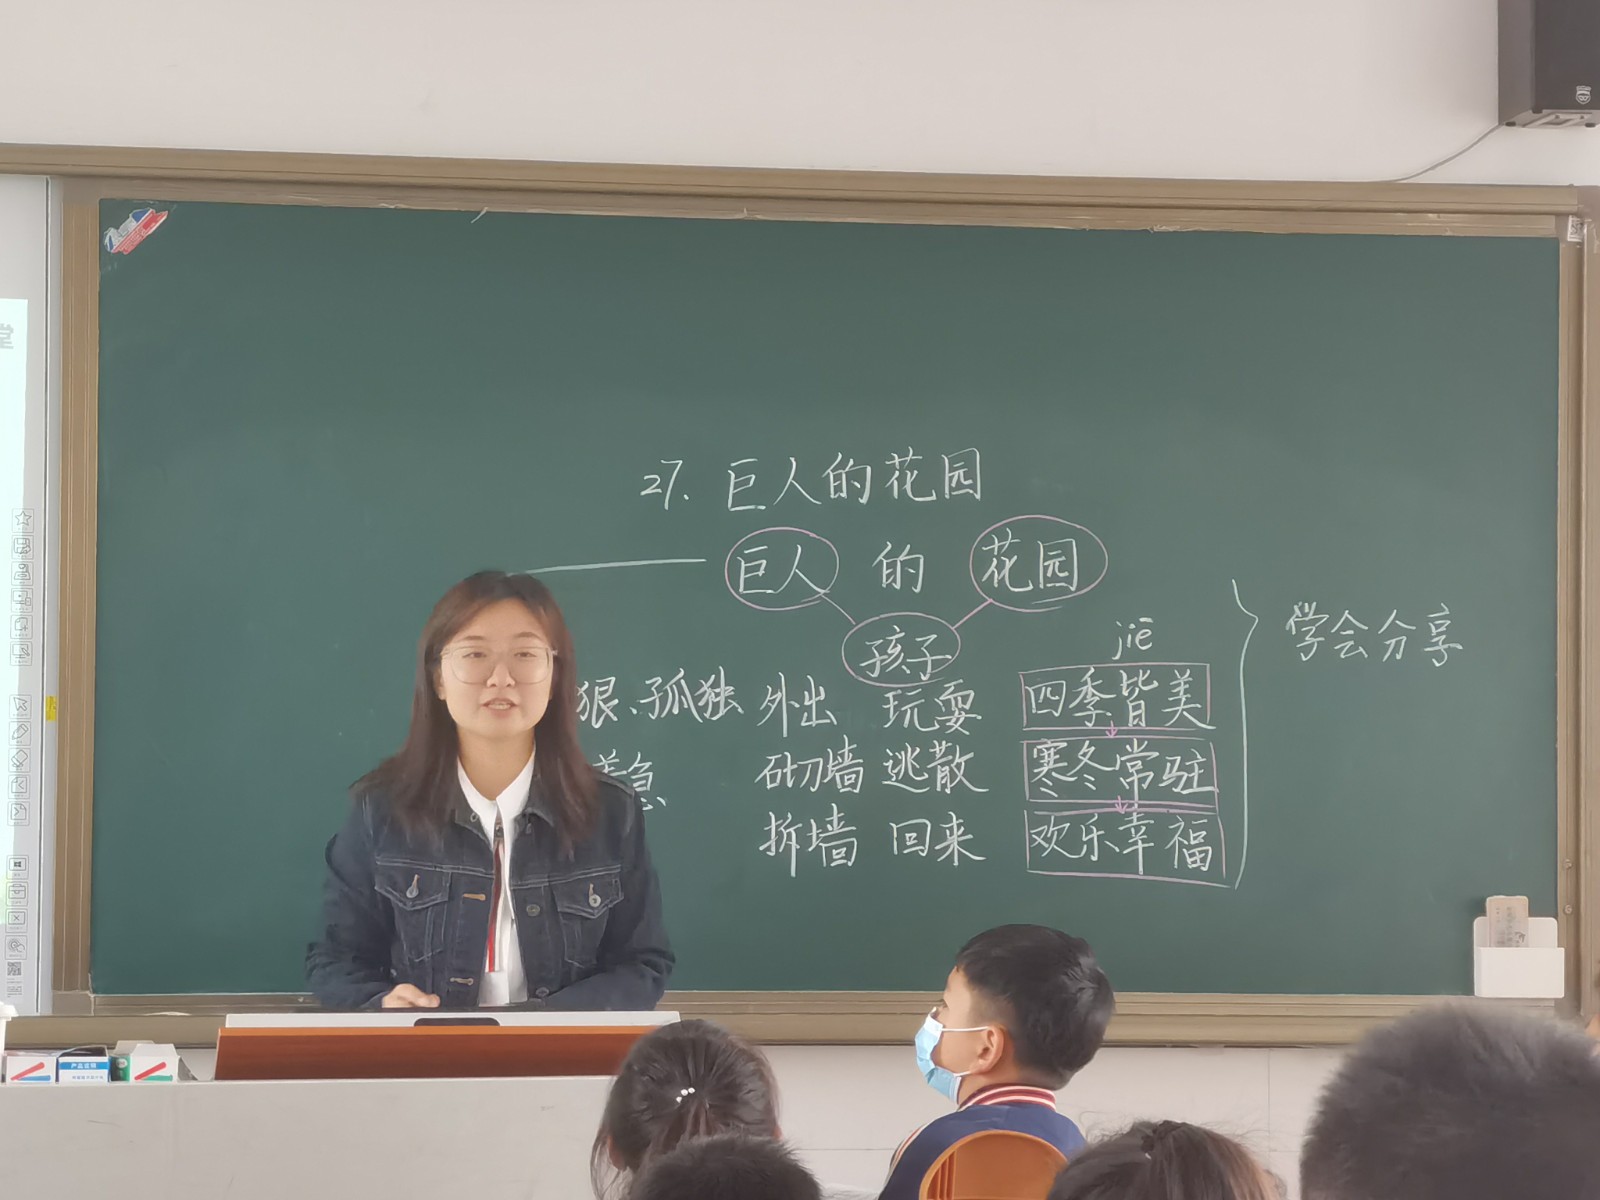 27. 巨人的花园
巨人 的 花园
孩子
jiē
狠、孤独 外出 玩耍 四季皆美
着急 砌墙 逃散 寒冬常驻
拆墙 回来 欢乐幸福
学会分享
堂